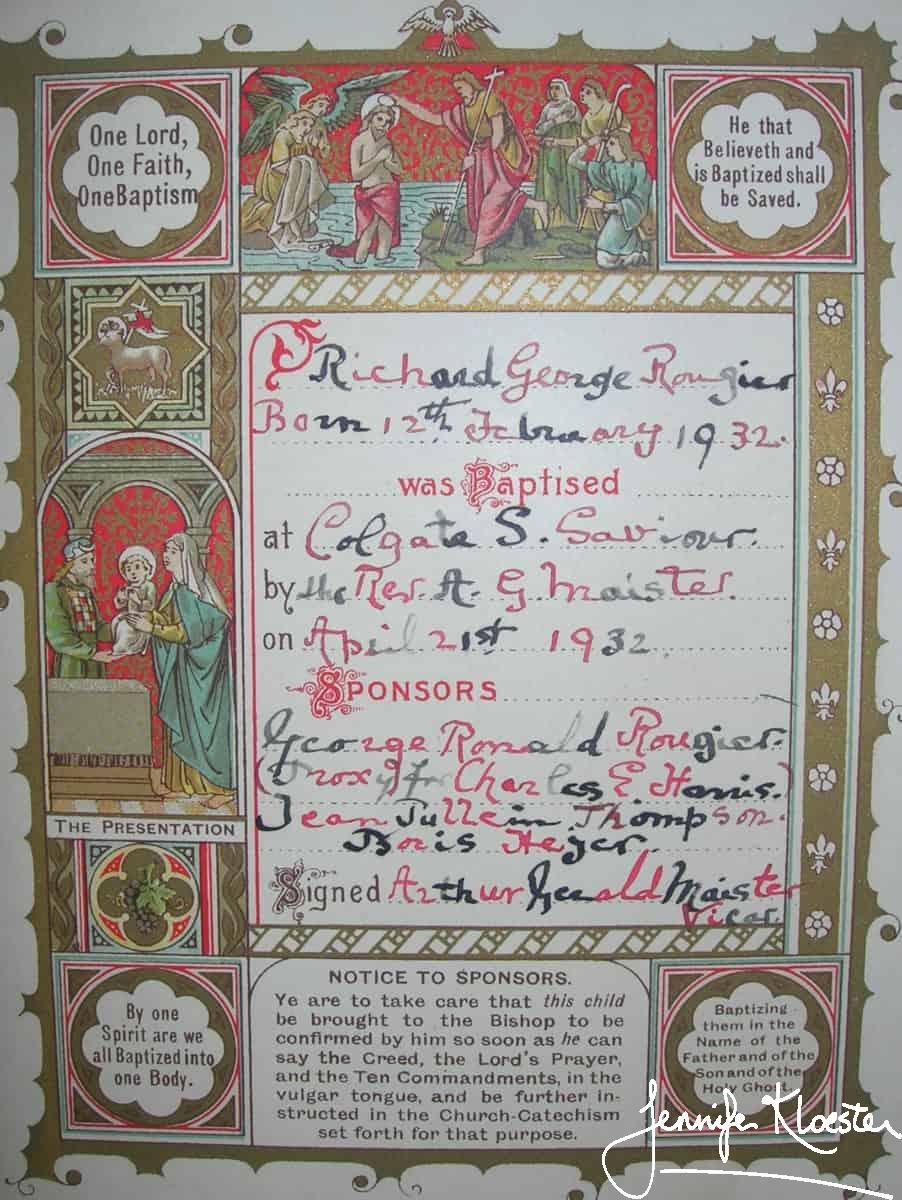 One Lord,
One Faith,
One Baptism
He that
Believeth and
is Baptized shall
be Saved.
Richard George Rougier
Born 12th February 1932.
was Baptised
at Colgate S. Saviour.
by the Rev. A. G Maister.
on April 21st 1932.
SPONSORS
George Ronald Rougier.
(Proxy for Charles E. Harris.)
Jean Pullein Thompson.
Boris Heyer.
Signed Arthur Gerald Maister
Vicar.
THE PRESENTATION
By one
Spirit are we
all Baptized into
one Body.
NOTICE TO SPONSORS.
Ye are to take care that this child
be brought to the Bishop to be
confirmed by him so soon as he can
say the Creed, the Lord's Prayer,
and the Ten Commandments, in the
vulgar tongue, and be further in-
structed in the Church-Catechism
set forth for that purpose.
Baptizing
them in the
Name of the
Father and of the
Son and of the
Holy Ghost.
Jennifer Kloester